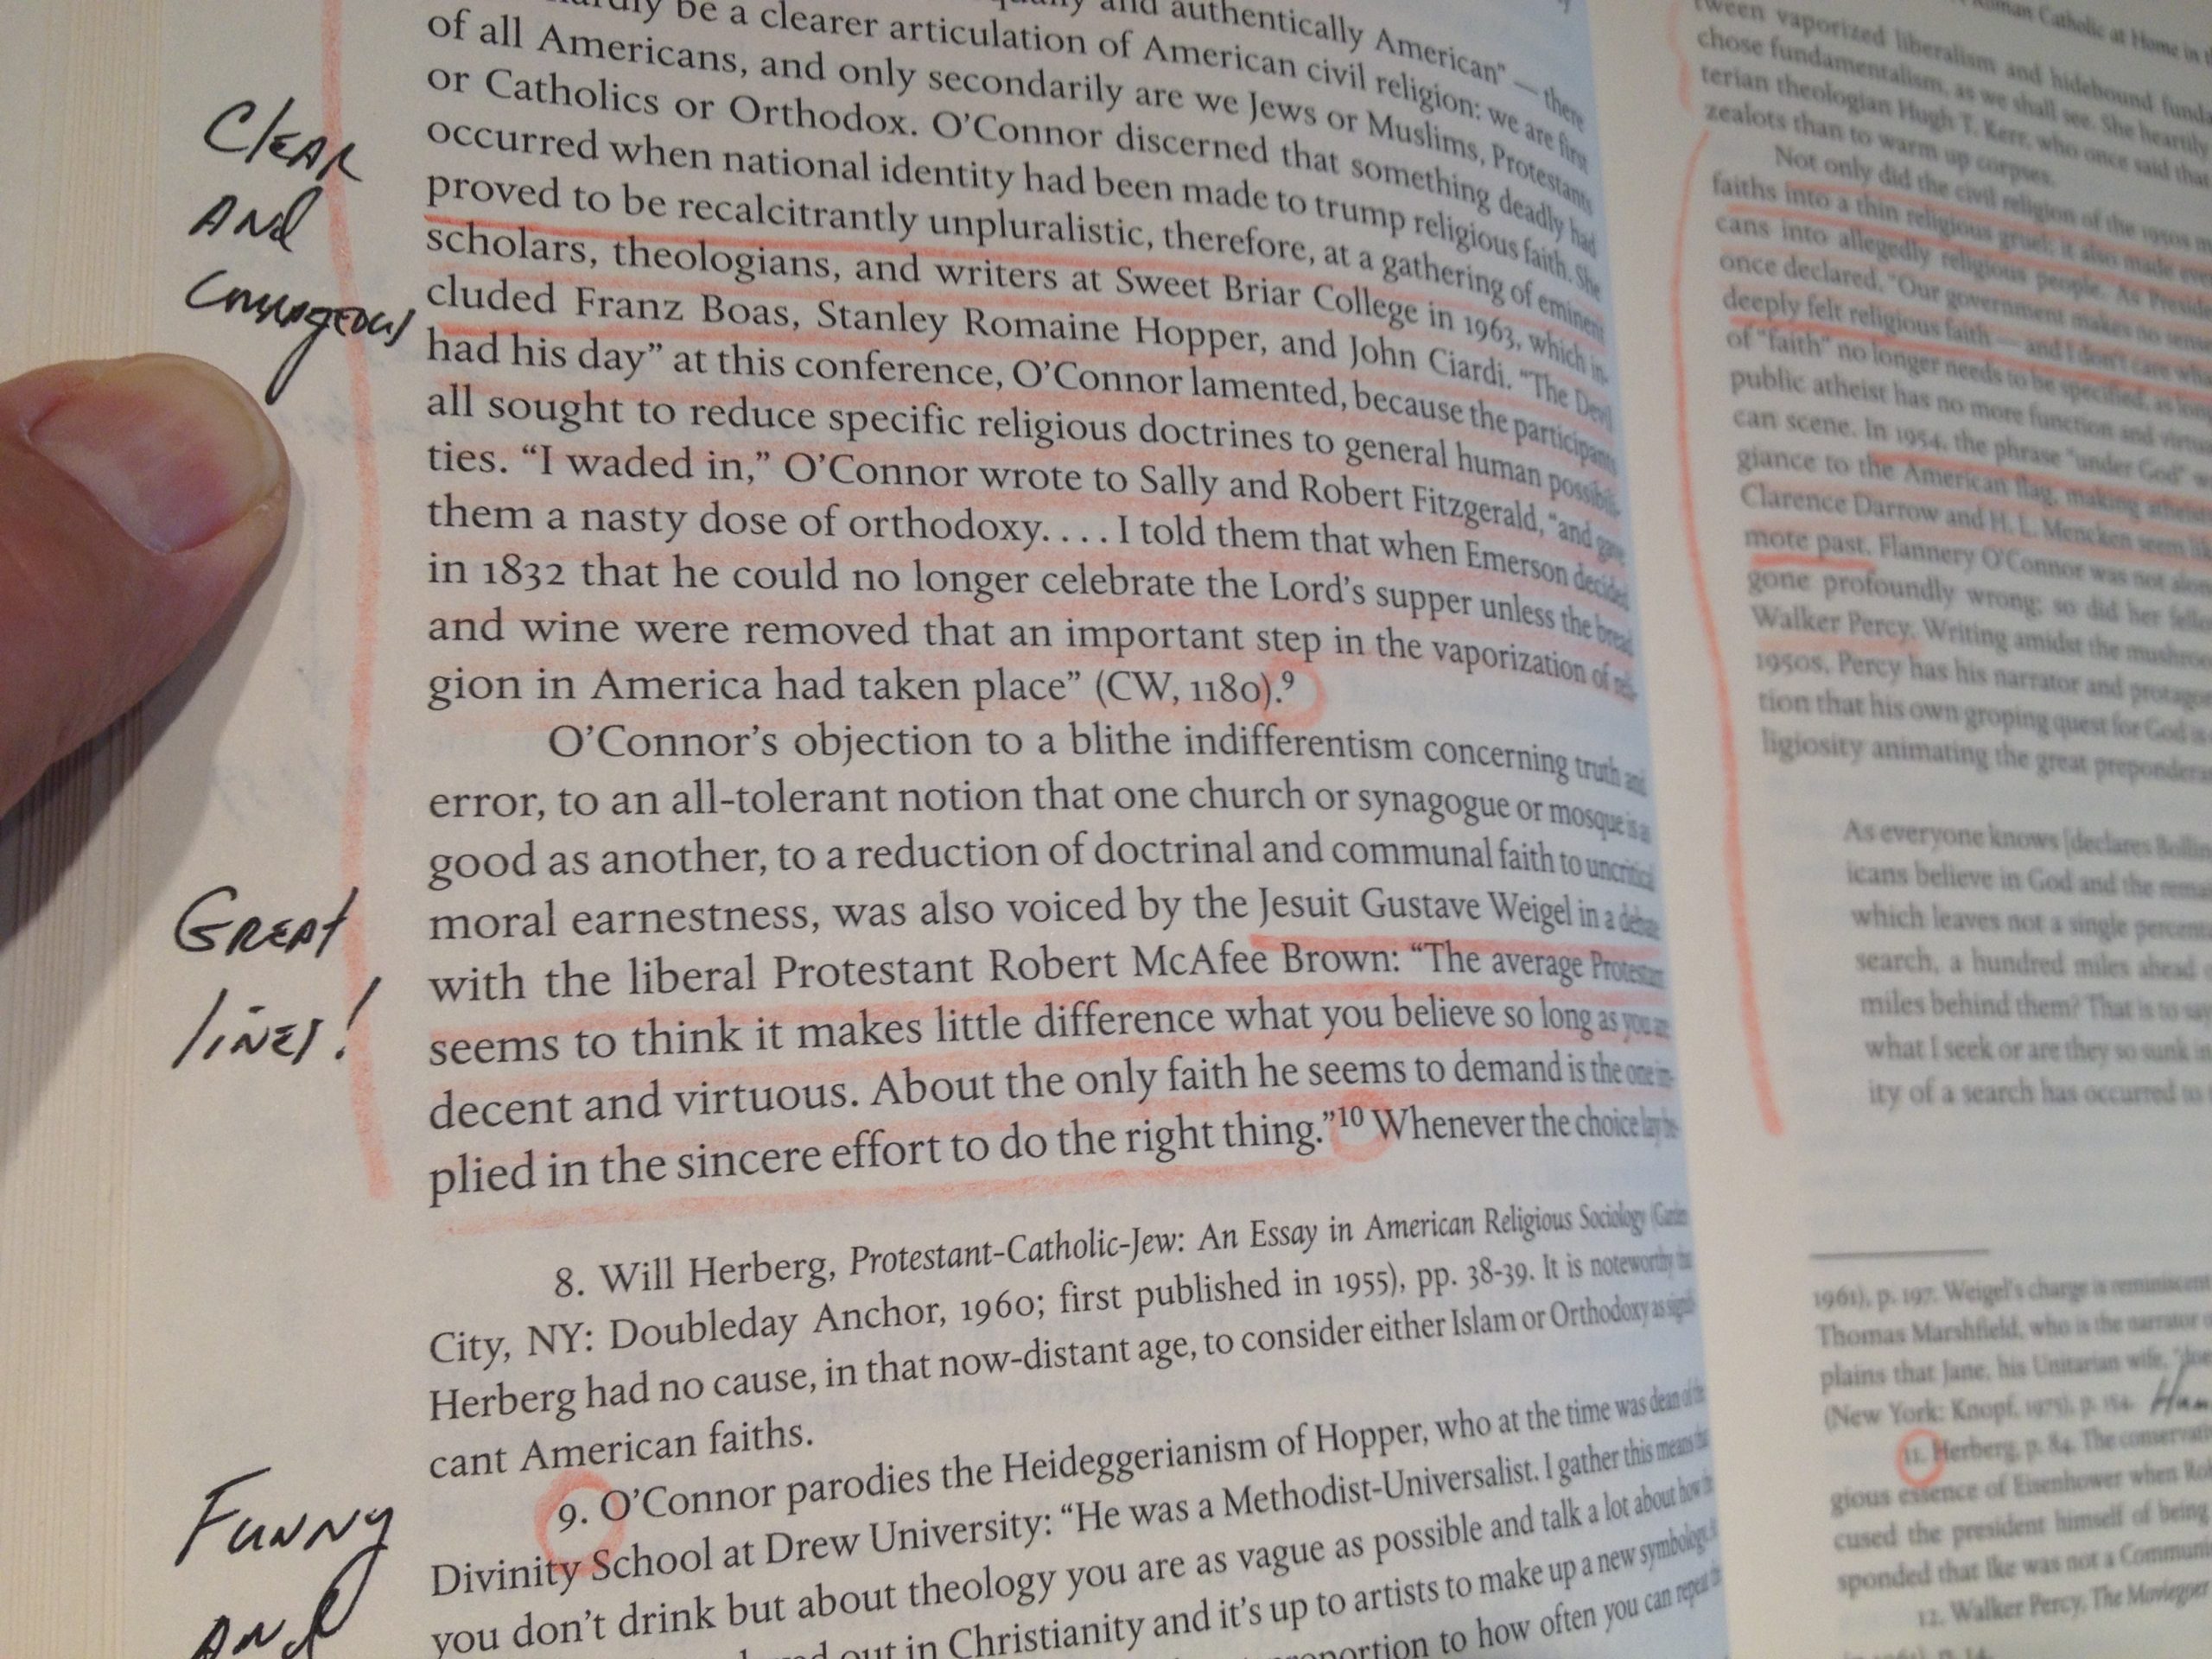 be a clearer articulation of American civil religion: we are first
and authentically American" — there
of all Americans, and only secondarily are we Jews or Muslims, Protestants
or Catholics or Orthodox. O'Connor discerned that something deadly had
occurred when national identity had been made to trump religious faith. She
proved to be recalcitrantly unpluralistic, therefore, at a gathering of eminent
scholars, theologians, and writers at Sweet Briar College in 1963, which in-
cluded Franz Boas, Stanley Romaine Hopper, and John Ciardi. "The Devil
had his day" at this conference, O'Connor lamented, because the participants
all sought to reduce specific religious doctrines to general human possibili-
ties. "I waded in," O'Connor wrote to Sally and Robert Fitzgerald, "and gave
them a nasty dose of orthodoxy. . . . I told them that when Emerson decided
in 1832 that he could no longer celebrate the Lord's supper unless the bread
and wine were removed that an important step in the vaporization of reli-
gion in America had taken place" (CW, 1180).9
O'Connor's objection to a blithe indifferentism concerning truth and
error, to an all-tolerant notion that one church or synagogue or mosque is a
good as another, to a reduction of doctrinal and communal faith to uncritical
moral earnestness, was also voiced by the Jesuit Gustave Weigel in a debate
with the liberal Protestant Robert McAfee Brown: "The average Protestant
seems to think it makes little difference what you believe so long as you are
decent and virtuous. About the only faith he seems to demand is the one im-
plied in the sincere effort to do the right thing."10 Whenever the choice lay be-
8. Will Herberg, Protestant-Catholic-Jew: An Essay in American Religious Sociology (Garden
City, NY: Doubleday Anchor, 1960; first published in 1955), pp. 38-39. It is noteworthy that
Herberg had no cause, in that now-distant age, to consider either Islam or Orthodoxy as signifi-
cant American faiths.
9. O'Connor parodies the Heideggerianism of Hopper, who at the time was dean of the
Divinity School at Drew University: "He was a Methodist-Universalist. I gather this means that
you don't drink but about theology you are as vague as possible and talk a lot about how the
out in Christianity and it's up to artists to make up a new symbology
to how often you can repeat
Clear
And
Courageous
Great
lines!
Funny
And
Roman Catholic at Home in
tween vaporized liberalism and hidebound funda
chose fundamentalism, as we shall see. She heartily
terian theologian Hugh T. Kerr, who once said that
zealots than to warm up corpses.
Not only did the civil religion of the 1950s
faiths into a thin religious gruel; it also made
cans into allegedly religious people. As Presid
once declared, "Our government makes no sense
deeply felt religious faith — and I don't care wha
of "faith" no longer needs to be specified, as long
public atheist has no more function and virtu
can scene. In 1954, the phrase "under God"
giance to the American flag, making atheist
Clarence Darrow and H. L. Mencken seem lik
mote past. Flannery O'Connor was not alon
gone profoundly wrong; so did her fello
Walker Percy. Writing amidst the mushroo
1950s, Percy has his narrator and protago
tion that his own groping quest for God is
ligiosity animating the great preponderan
As everyone knows [declares Bollin
icans believe in God and the remai
which leaves not a single percent
search, a hundred miles ahead
miles behind them? That is to say
what I seek or are they so sunk in
ity of a search has occurred to
1961), p. 197. Weigel's charge is reminiscent
Thomas Marshfield, who is the narrator
plains that Jane, his Unitarian wife,
(New York: Knopf, 1975), p.
11. Herberg, p. 84. The conservati
gious essence of Eisenhower when Rob
cused the president himself of being
sponded that Ike was not a Communi
12. Walker Percy, The Moviegoer